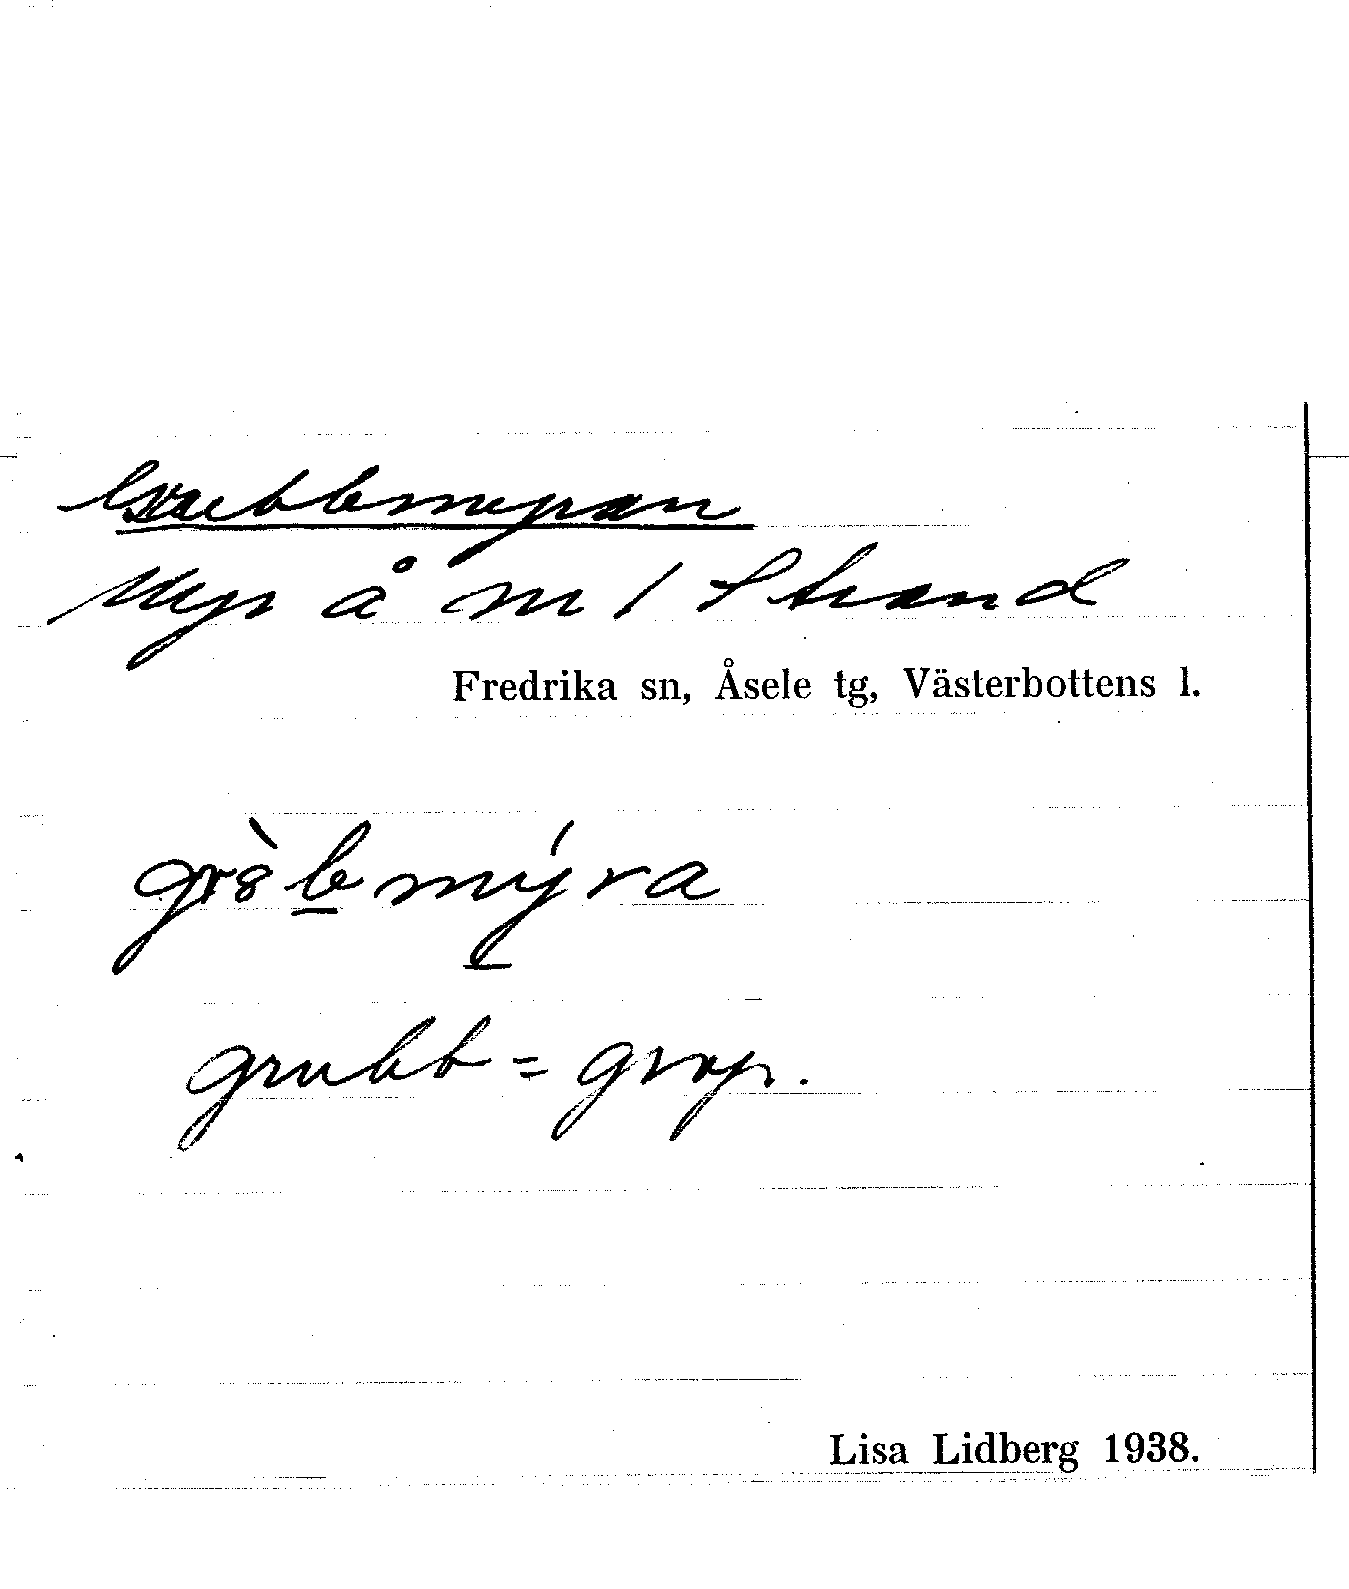 Grubbmyran
Myr å m / Strand
Fredrika sn, Åsele tg, Västerbottens l.
gr8̀b̲mý̲ra
grubb = grop.
Lisa Lidberg 1938.